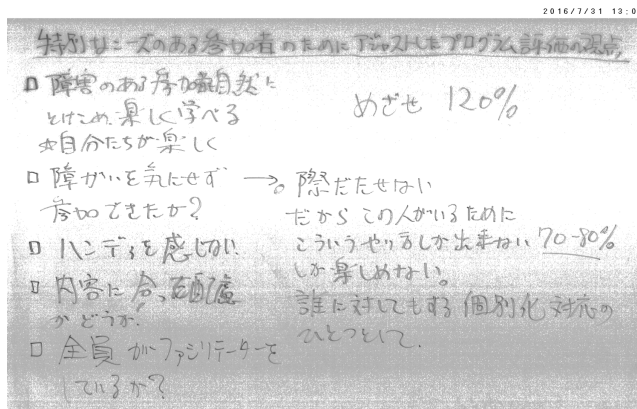 2016/7/31 13:0
特別なニーズのある参加者のためにアジャストしたプログラム評価の視点
□ 障害のある参加者自然に
とけこめ、楽しく学べる
☆自分たちが楽しく
めざせ 120%
□ 障がいを気にせず
参加できたか?
→。際だたせない
だから この人がいるために
こういうやり方しか出来ない 70-80%
しか楽しめない。
誰に対してもする個別化対応の
ひとつとして.
□ ハンディを感じない
□ 内容に合った配慮
かどうか!
□ 全員がファシリテーターを
しているか?